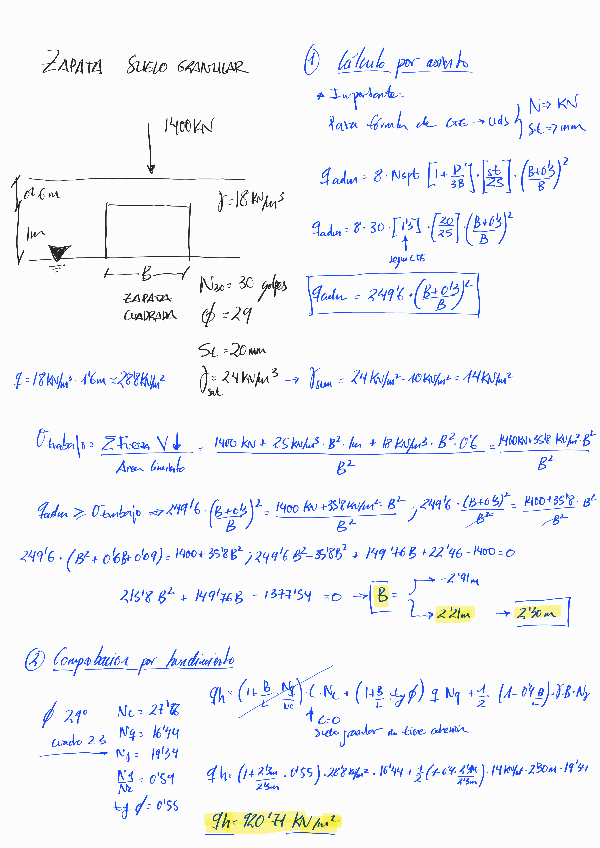 ZAPATA SUELO GRANULAR
1400KN
0'6m
1m
B
ZAPATA
CUADRADA
γ=18KN/m³
N30 = 30 golpes
ϕ = 29
St = 20mm
q=18KN/m³·1'6m=28'8KN/m²
γsat = 24KN/m³ → γsum = 24KN/m³-10KN/m³=14KN/m³
① Cálculo por asiento
* Importante:
Para fórmula de CTE → Uds
N ⇒ KN
St ⇒ mm
qadm = 8·Nspt [1+D/3B]·[St/25]·(B+0'3/B)²
qadm = 8·30·[1'3]·[20/25]·(B+0'3/B)²
según CTE
qadm = 249'6·(B+0'3/B)²
σtrabajo = Σ Fuerza V↓ / Area Cimiento = 1400 KN + 25KN/m³·B²·1m + 18KN/m³·B²·0'6 / B² = 1400KN+35'8KN/m²·B² / B²
qadm ≥ σtrabajo ⇒ 249'6·(B+0'3/B)² = 1400 KN+35'8KN/m²·B² / B² ; 249'6·(B+0'3)²/B² = 1400+35'8·B²/B²
249'6·(B²+0'6B+0'09)=1400+35'8B²; 249'6B²-35'8B²+149'76B+22'46-1400=0
213'8B² + 149'76B - 1377'54 = 0 → B =
-2'91m
2'21m → 2'30m
② Comprobación por hundimiento
ϕ 29º
cuadro 2.3
Nc = 27'86
Nq = 16'44
Nγ = 19'34
Nq/Nc = 0'59
tg ϕ = 0'55
qh = (1+B/L·Nq/Nc)·C·Nc + (1+B/L·tg ϕ) q Nq + 1/2 (1-0'4 B/L)·γ·B·Nγ
C=0
Suelo granular no tiene cohesión
qh = (1+2'3m/2'3m·0'55)·28'8KN/m²·16'44+1/2(1-0'4·2'3m/2'3m)·14KN/m³·2'30m·19'34
qh = 920'71 KN/m²